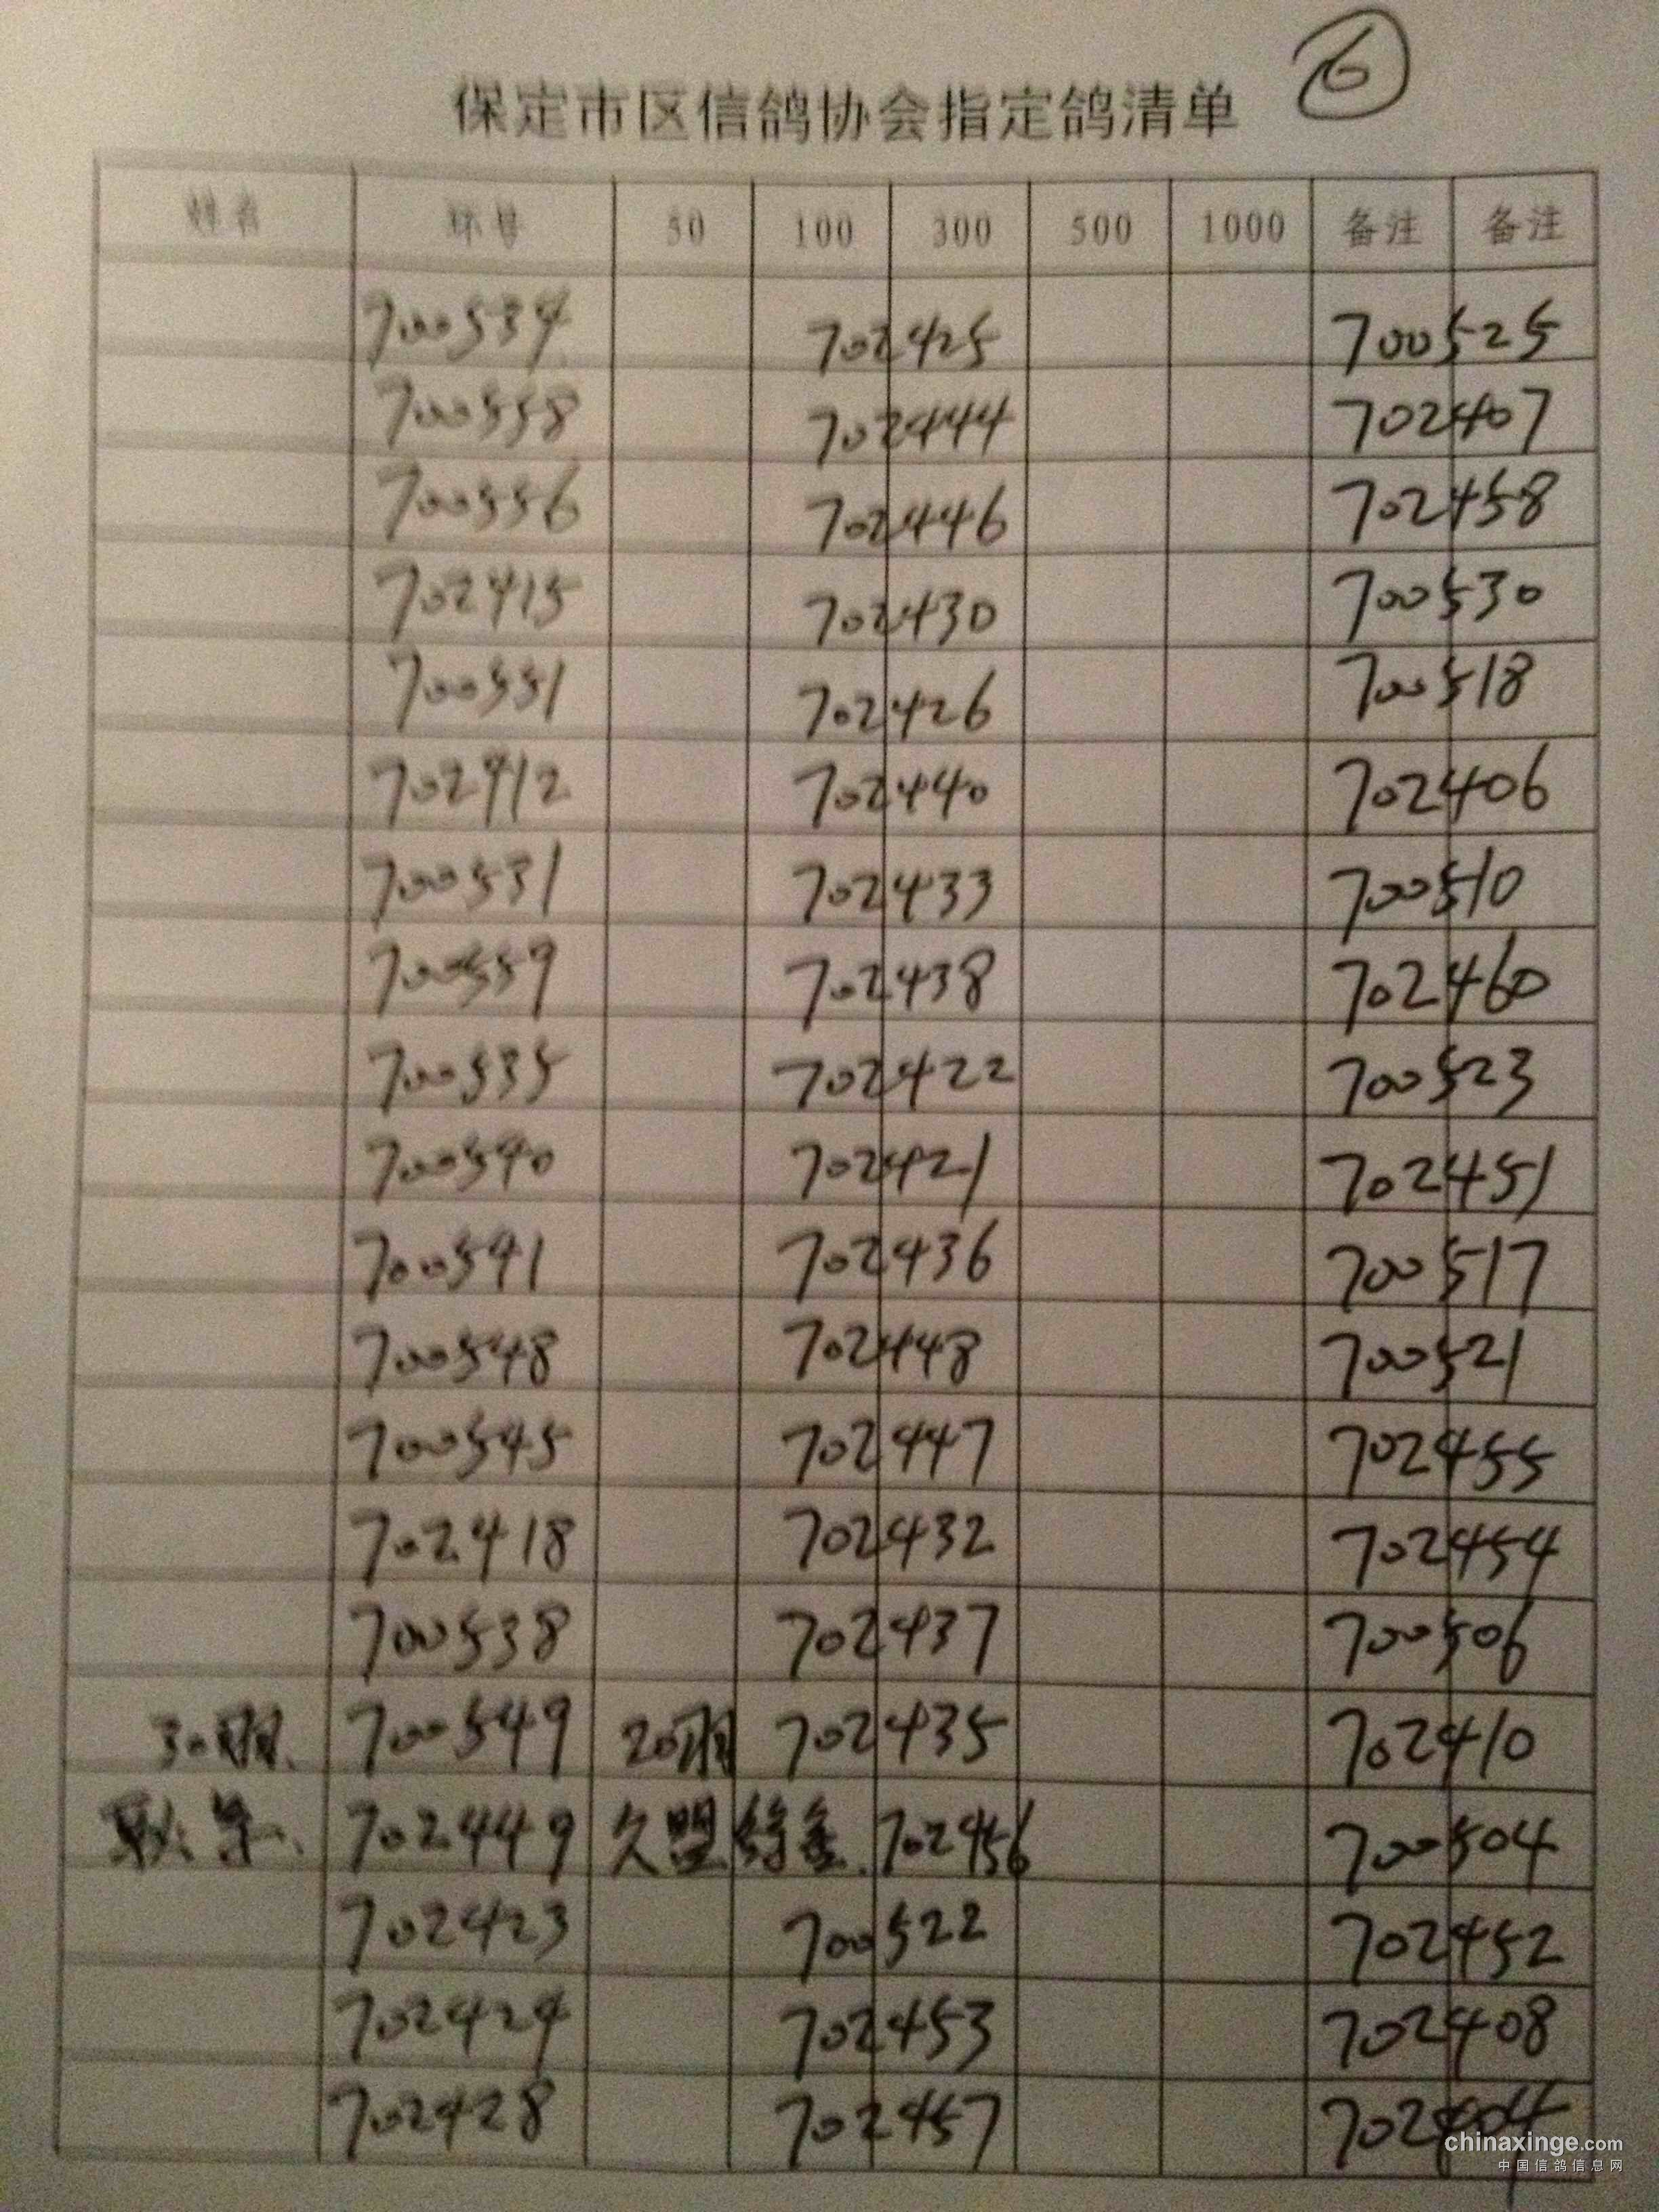 6
保定市区信鸽协会指定鸽清单
姓名 环号 50 100 300 500 1000 备注 备注
700534 702425 700525
700558 702444 702407
700556 702446 702458
702415 702430 700530
700551 702426 700518
702412 702440 702406
700531 702433 700510
700559 702438 702460
700535 702422 700523
700540 702421 702451
700541 702436 700517
700548 702448 700521
700545 702447 702455
702418 702432 702454
700538 702437 700506
30羽 700549 20羽 702435 702410
702449 久盟鸽舍 702456 700504
702423 700522 702452
702424 702453 702408
702428 702457 702404
chinaxinge.com
中国信鸽信息网